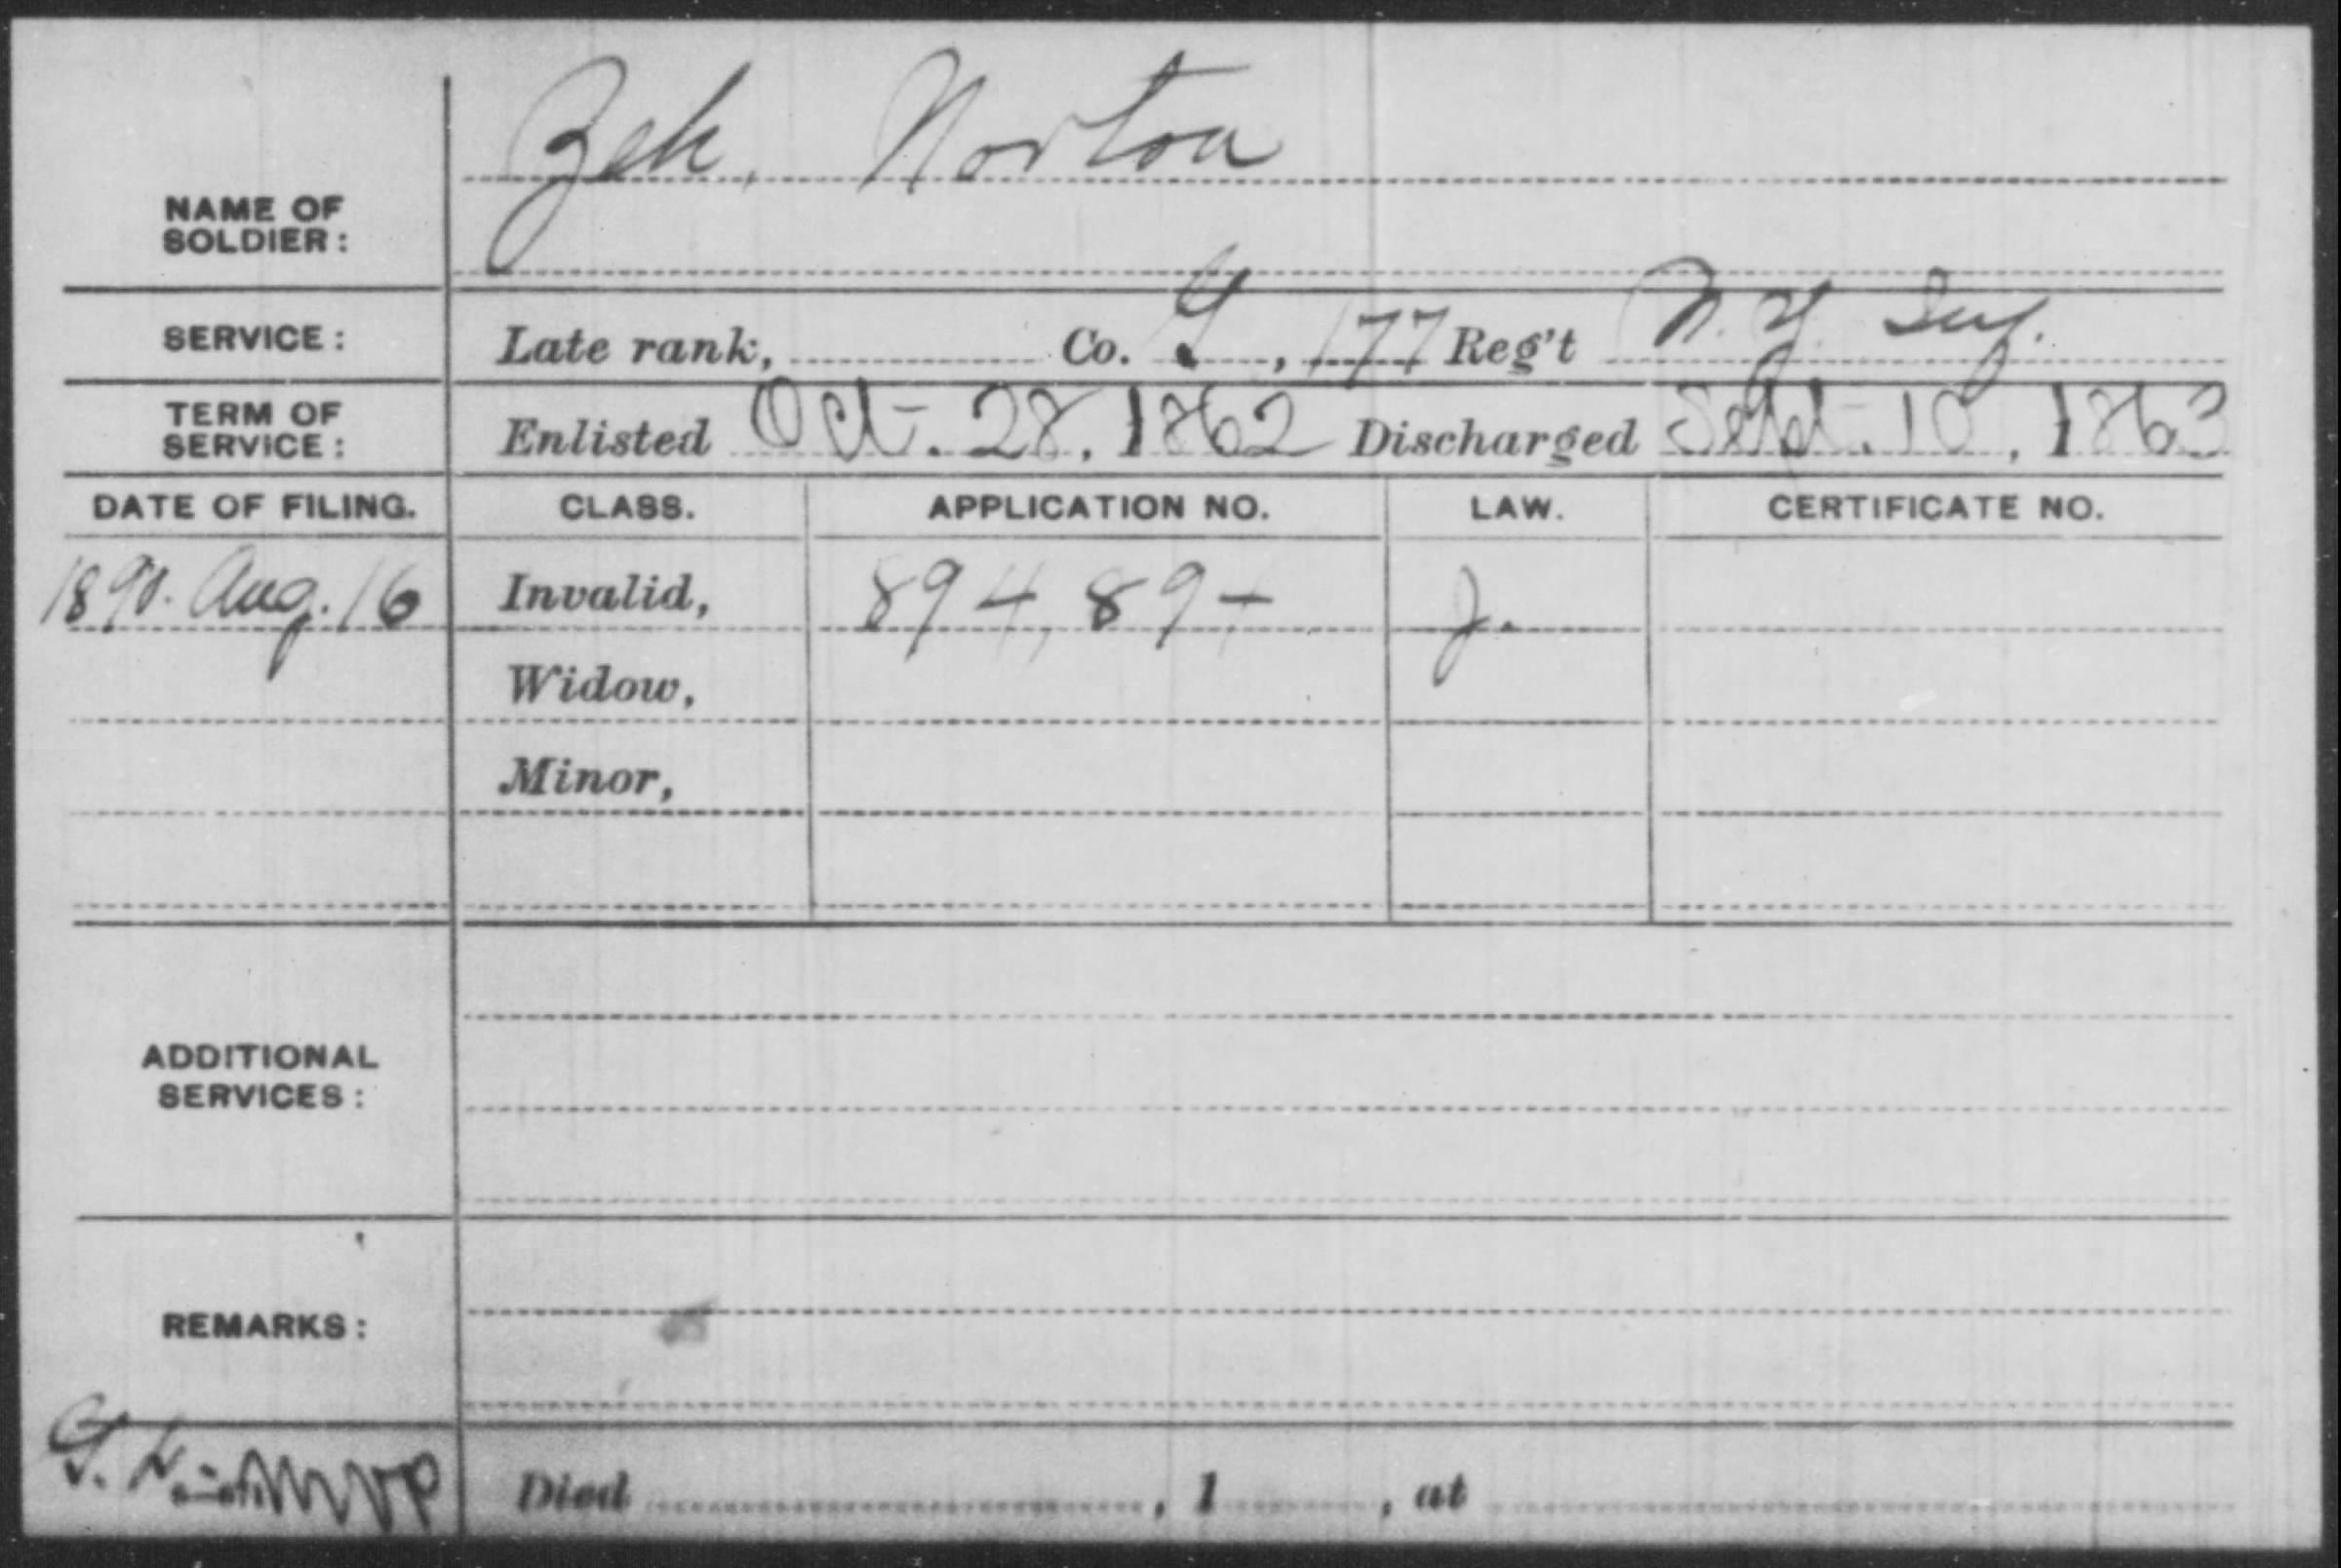 Zek. Norton
NAME OF
SOLDIER:
SERVICE: Late rank, Co. G, 177 Reg't N.Y. Inf.
TERM OF
SERVICE: Enlisted Oct. 28, 1862 Discharged Sept. 10, 1863
DATE OF FILING. CLASS. APPLICATION NO. LAW. CERTIFICATE NO.
1890. Aug. 16 Invalid, 894,894 J.
Widow,
Minor,
ADDITIONAL
SERVICES:
REMARKS:
Died , 1 , at